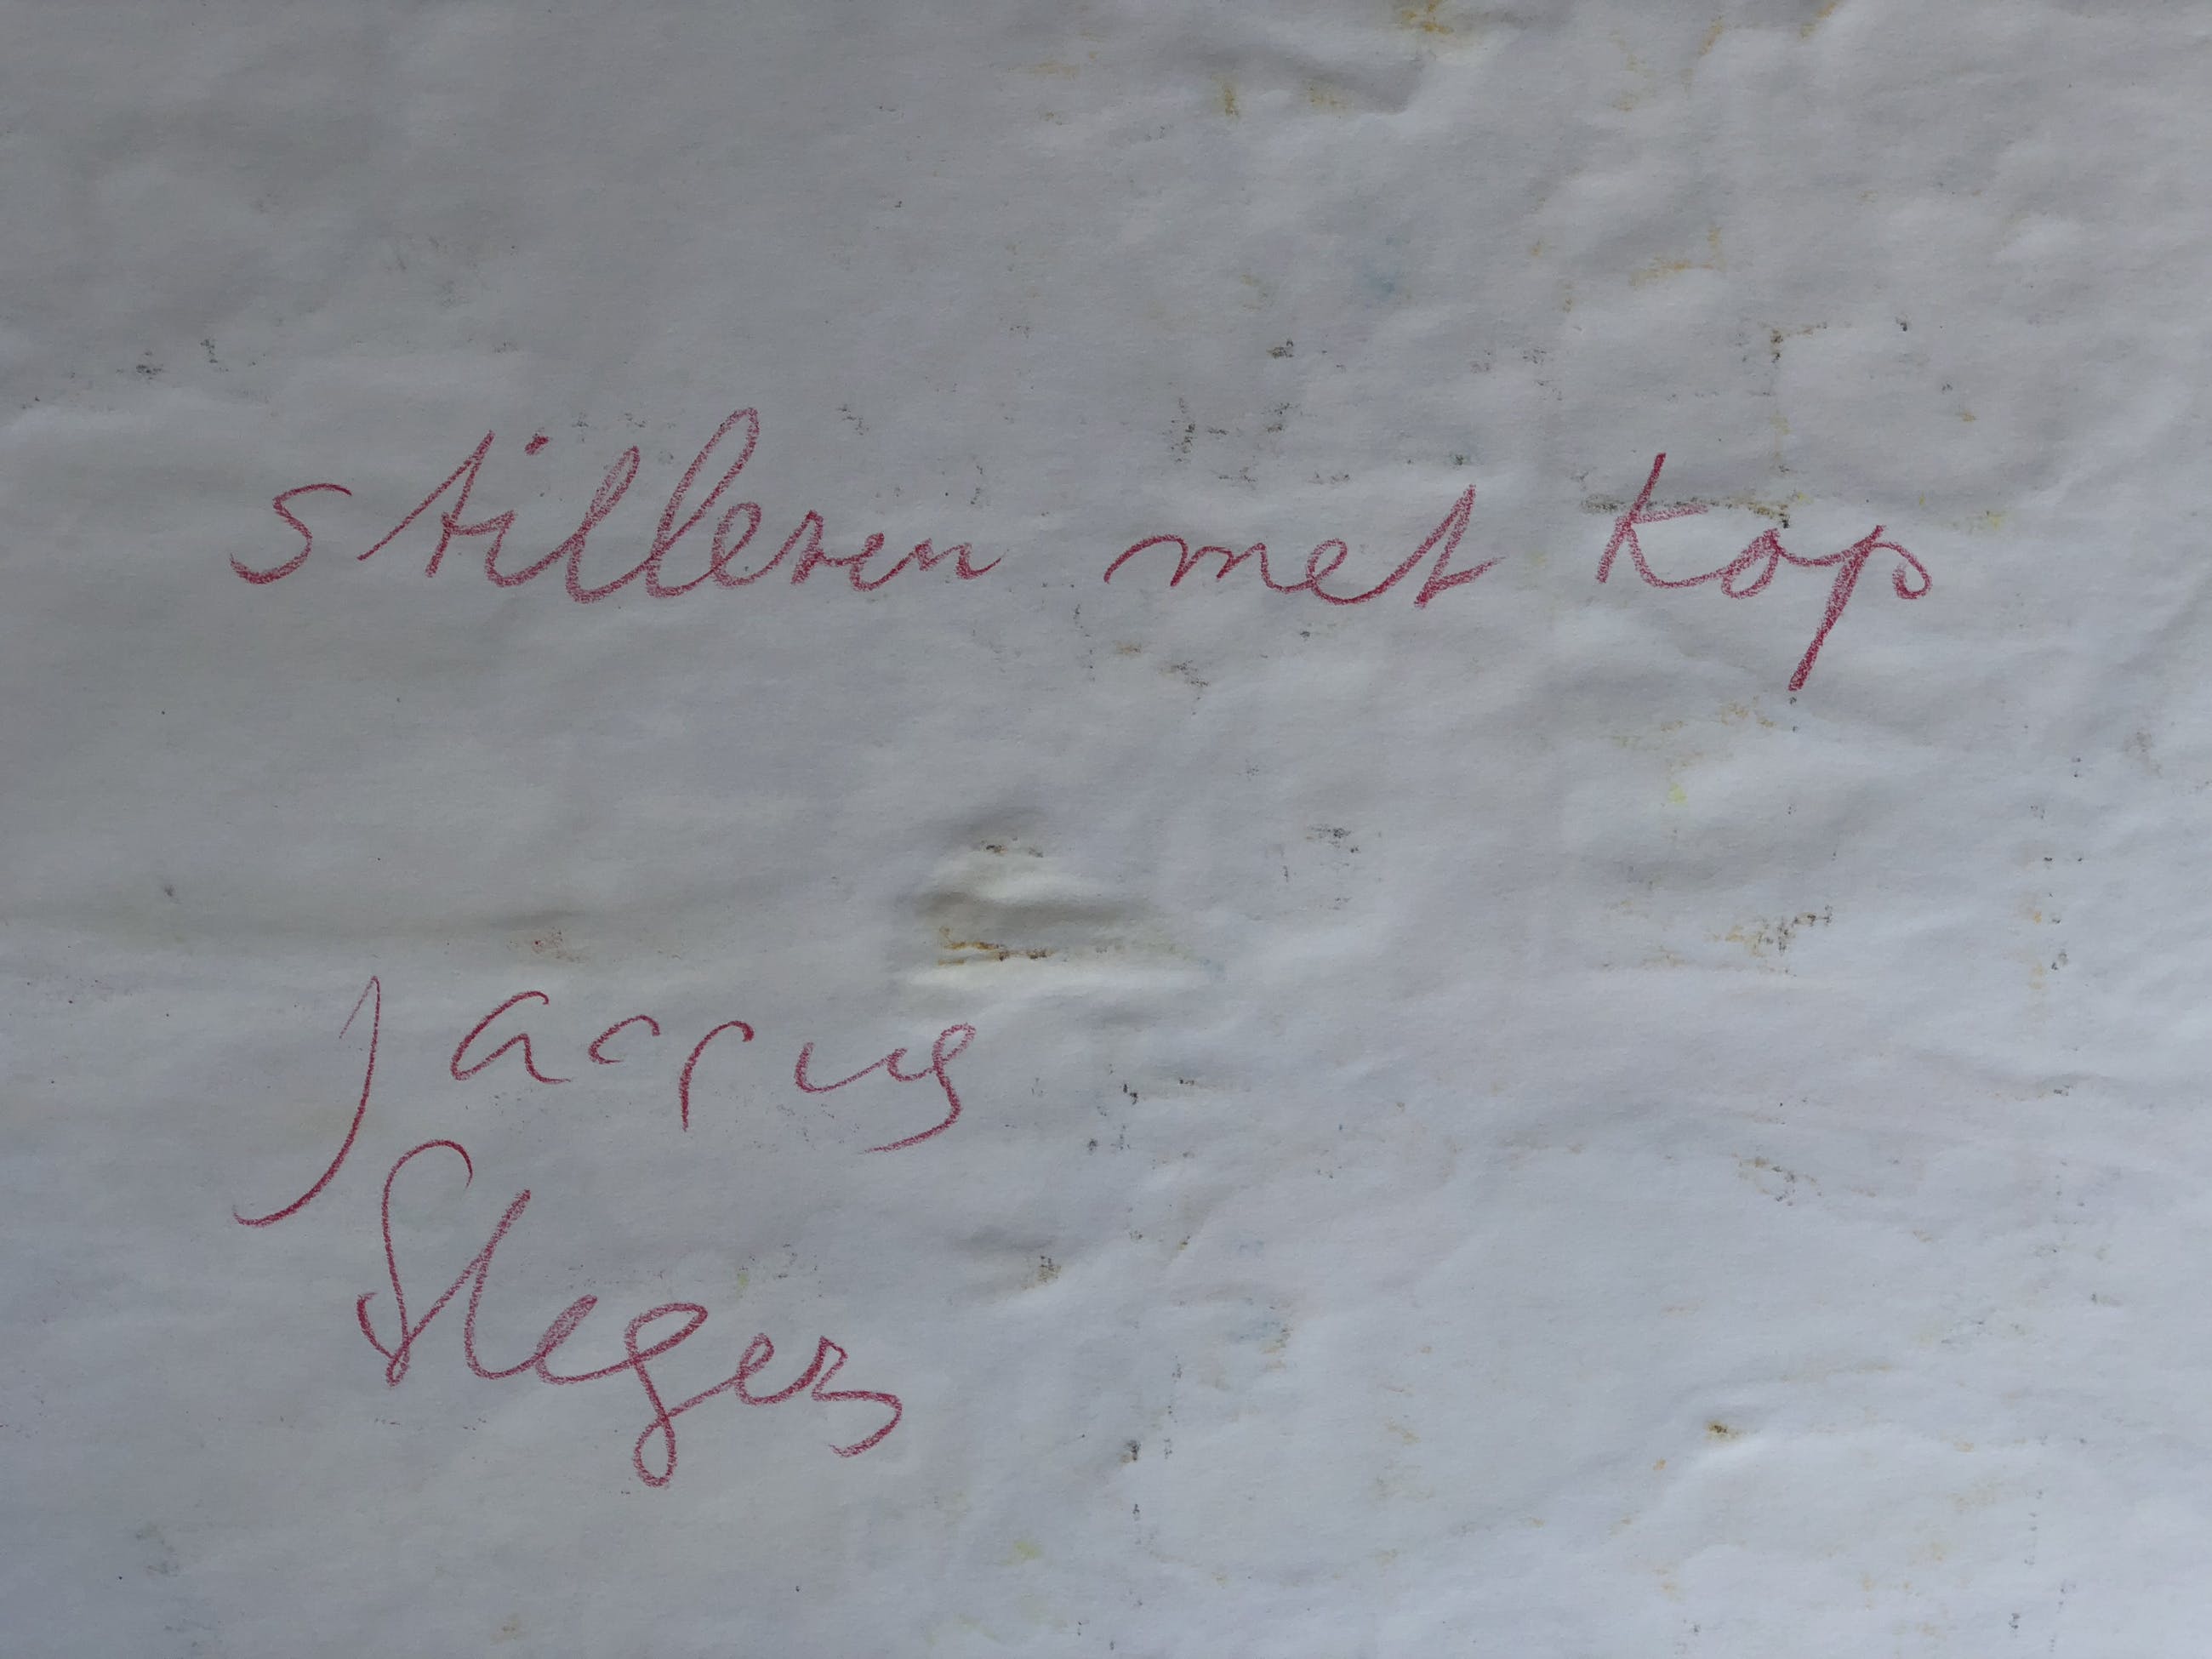 stilleven met kop
Jacpus
Slegers